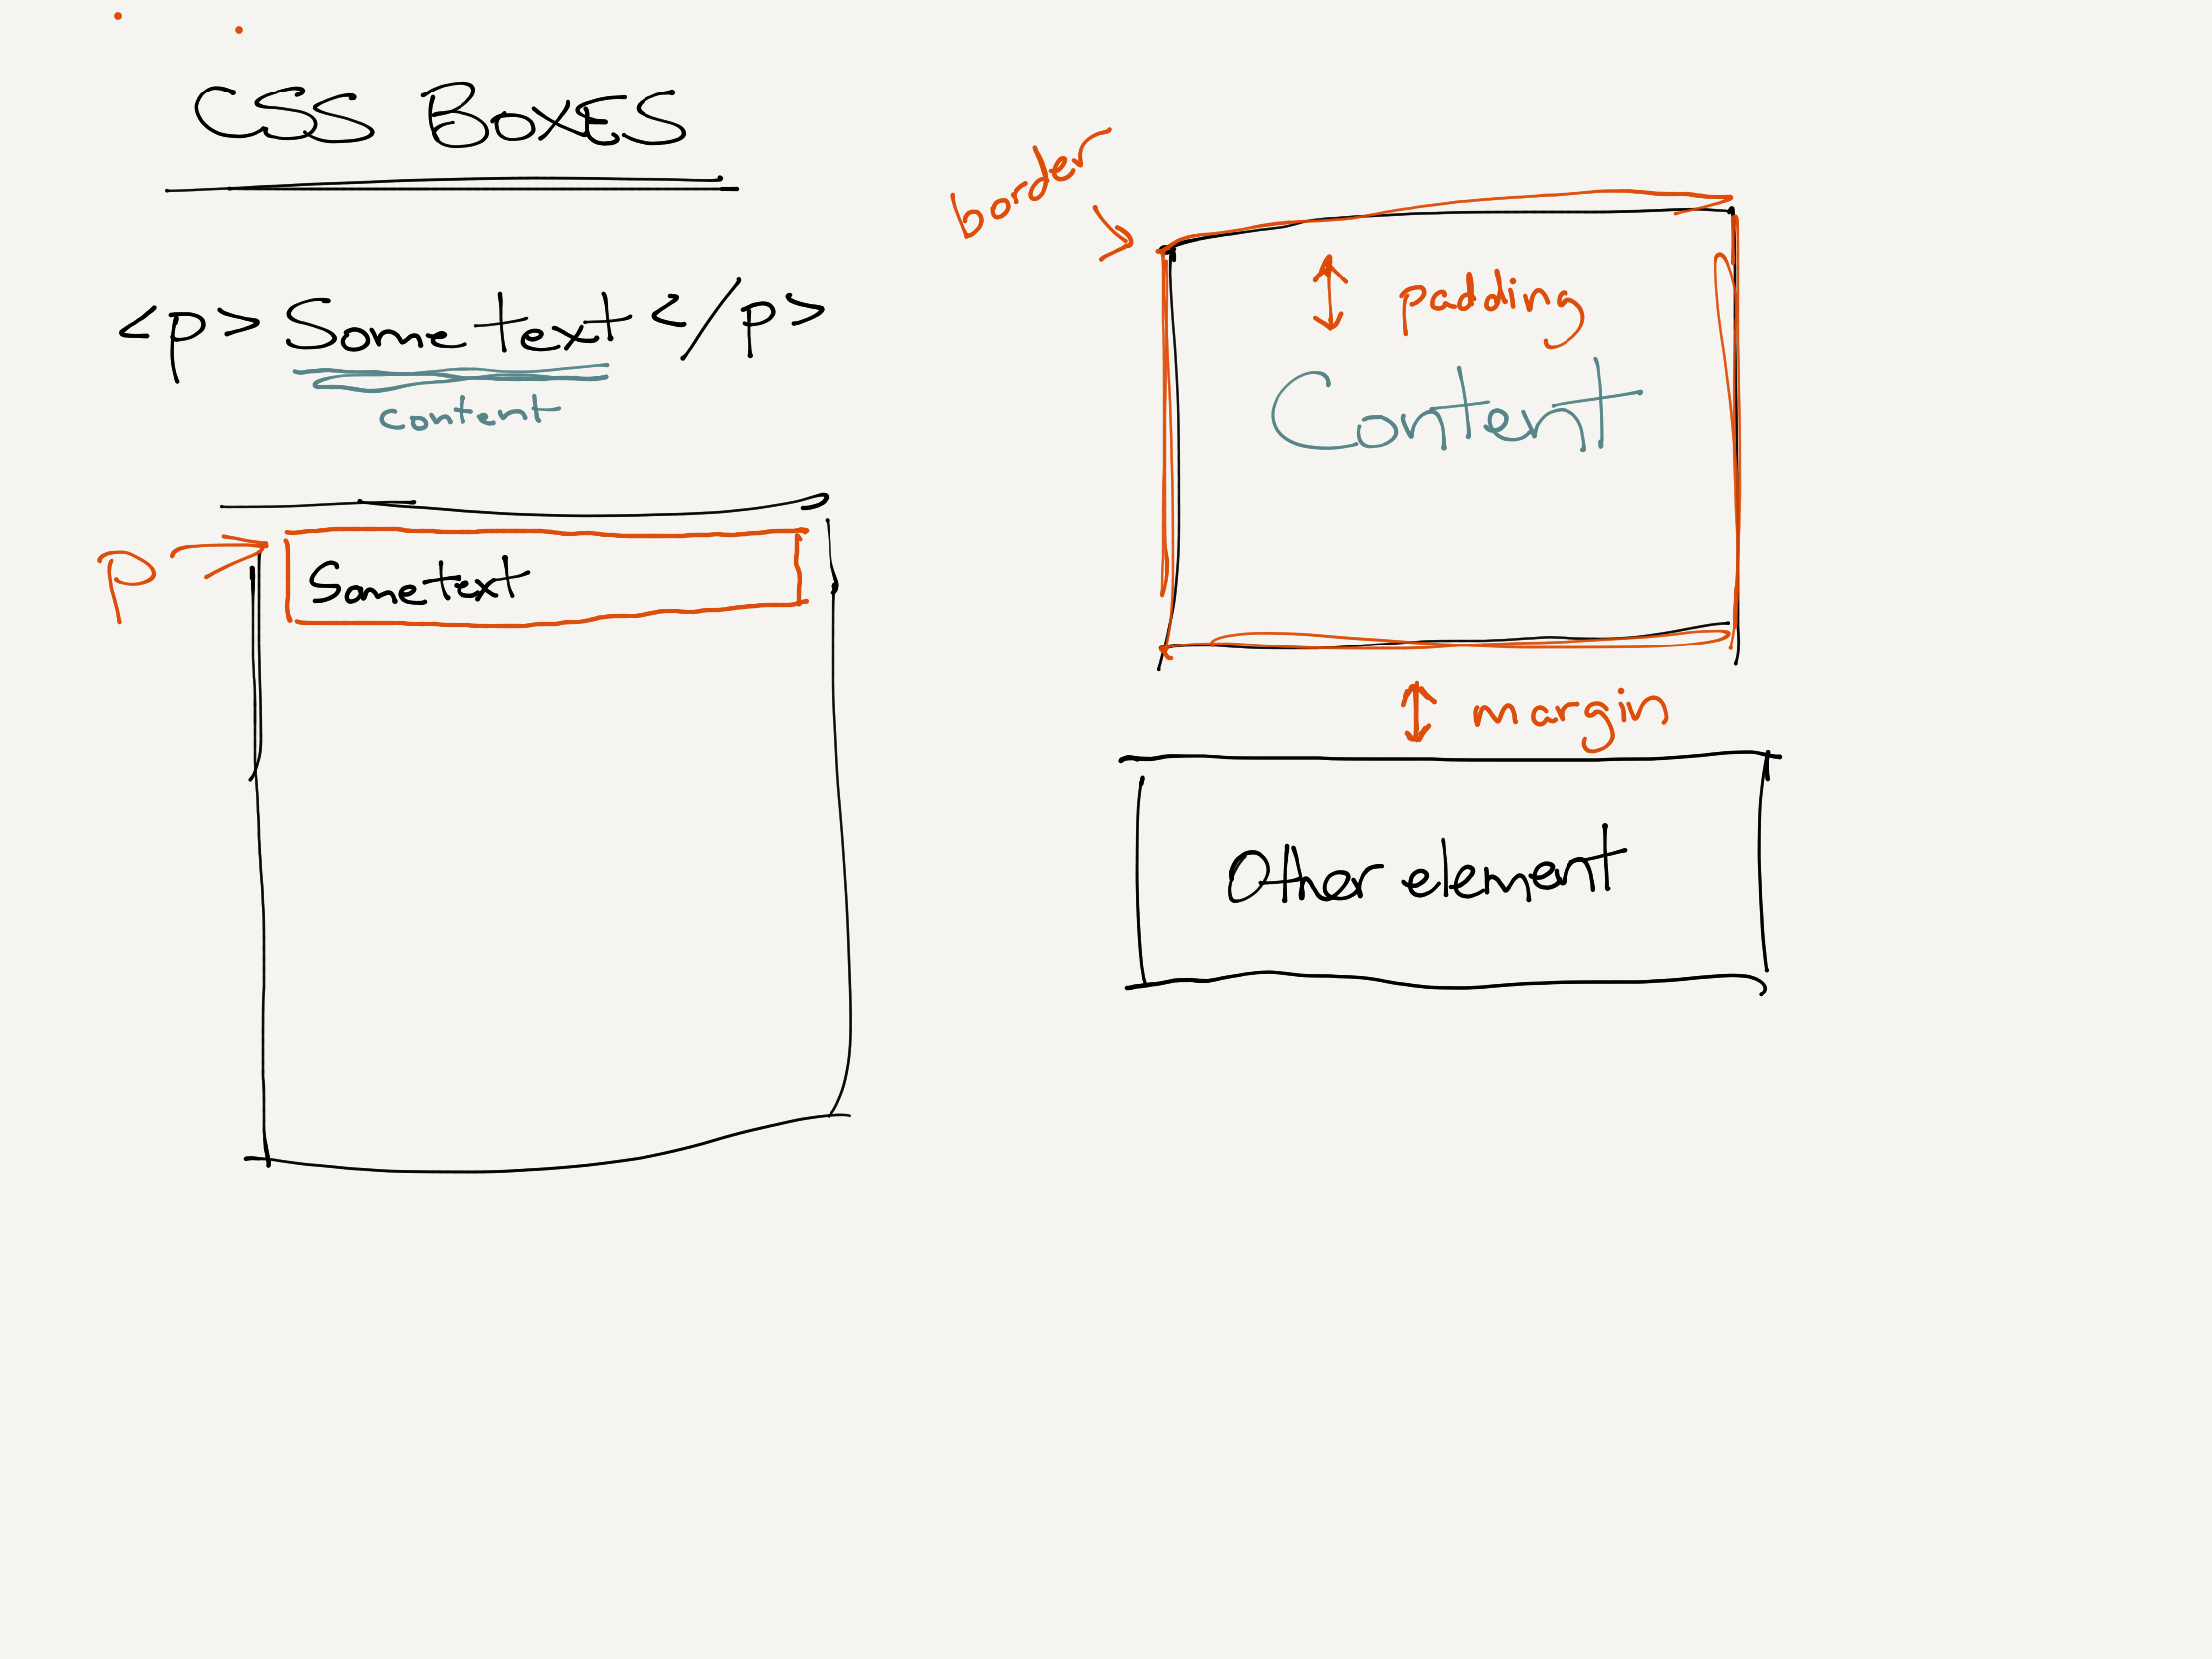 CSS Boxes
<p> Some text </p>
content
p
Some text
border
padding
Content
margin
Other element